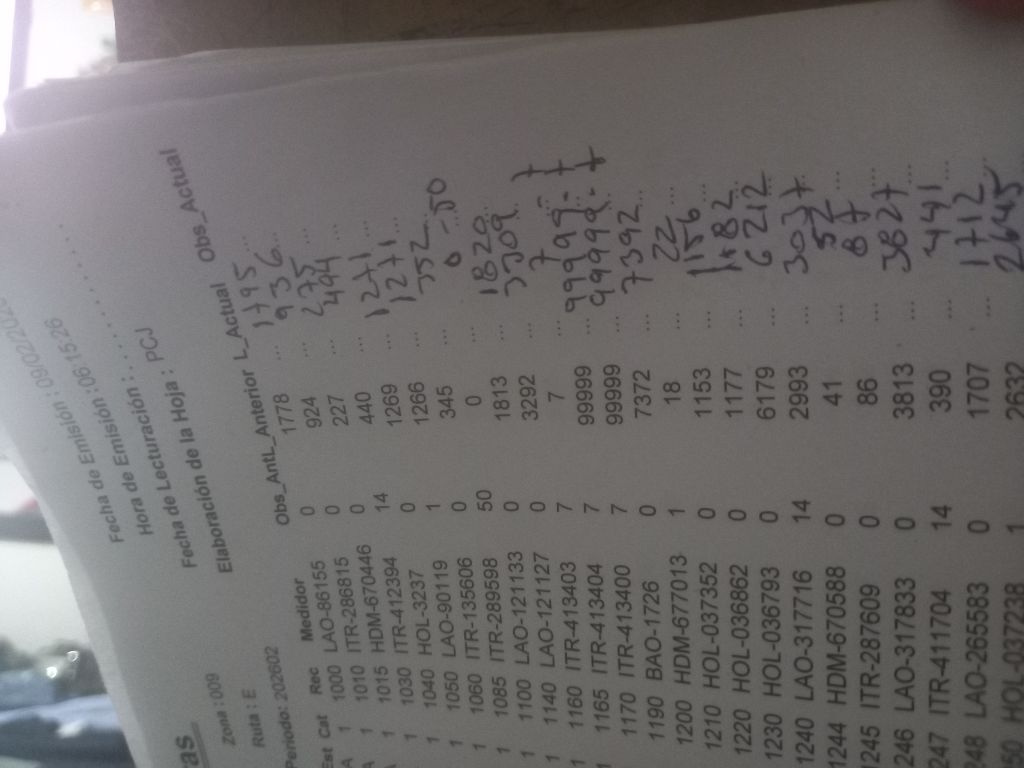 ras
Fecha de Emisión : 09/02/202
Hora de Emisión : 06:15:26
Fecha de Lecturación : ...............
Elaboración de la Hoja : PCJ
Zona : 009
Ruta : E
Periodo: 202602
Est Cat Rec Medidor Obs_Ant L_Anterior L_Actual Obs_Actual
A 1 1000 LAO-86155 0 1778 ... 1795 ...
A 1 1010 ITR-286815 0 924 ... 936 ...
A 1 1015 HDM-670446 0 227 ... 275 ...
1 1030 ITR-412394 14 440 ... 494 ...
1 1040 HOL-3237 0 1269 ... 1271 ...
1 1050 LAO-90119 1 1266 ... 1271 ...
1 1060 ITR-135606 0 345 ... 352 ...
1 1085 ITR-289598 50 0 ... 0 -50
1 1100 LAO-121133 0 1813 ... 1820 ...
1 1140 LAO-121127 0 3292 ... 3309 ...
1 1160 ITR-413403 7 7 ... 7 ... 7
1 1165 ITR-413404 7 99999 ... 99999 - 7
1 1170 ITR-413400 7 99999 ... 99999 - 7
1190 BAO-1726 0 7372 ... 7392 ...
1200 HDM-677013 1 18 ... 22 ...
1210 HOL-037352 0 1153 ... 1156 ...
1220 HOL-036862 0 1177 ... 1182 ...
1230 HOL-036793 0 6179 ... 6212 ...
1240 LAO-317716 14 2993 ... 3037 ...
1244 HDM-670588 0 41 ... 52 ...
245 ITR-287609 0 86 ... 87 ...
246 LAO-317833 0 3813 ... 3827 ...
247 ITR-411704 14 390 ... 441 ...
248 LAO-265583 0 1707 ... 1712 ...
50 HOL-037238 1 2632 ... 2645